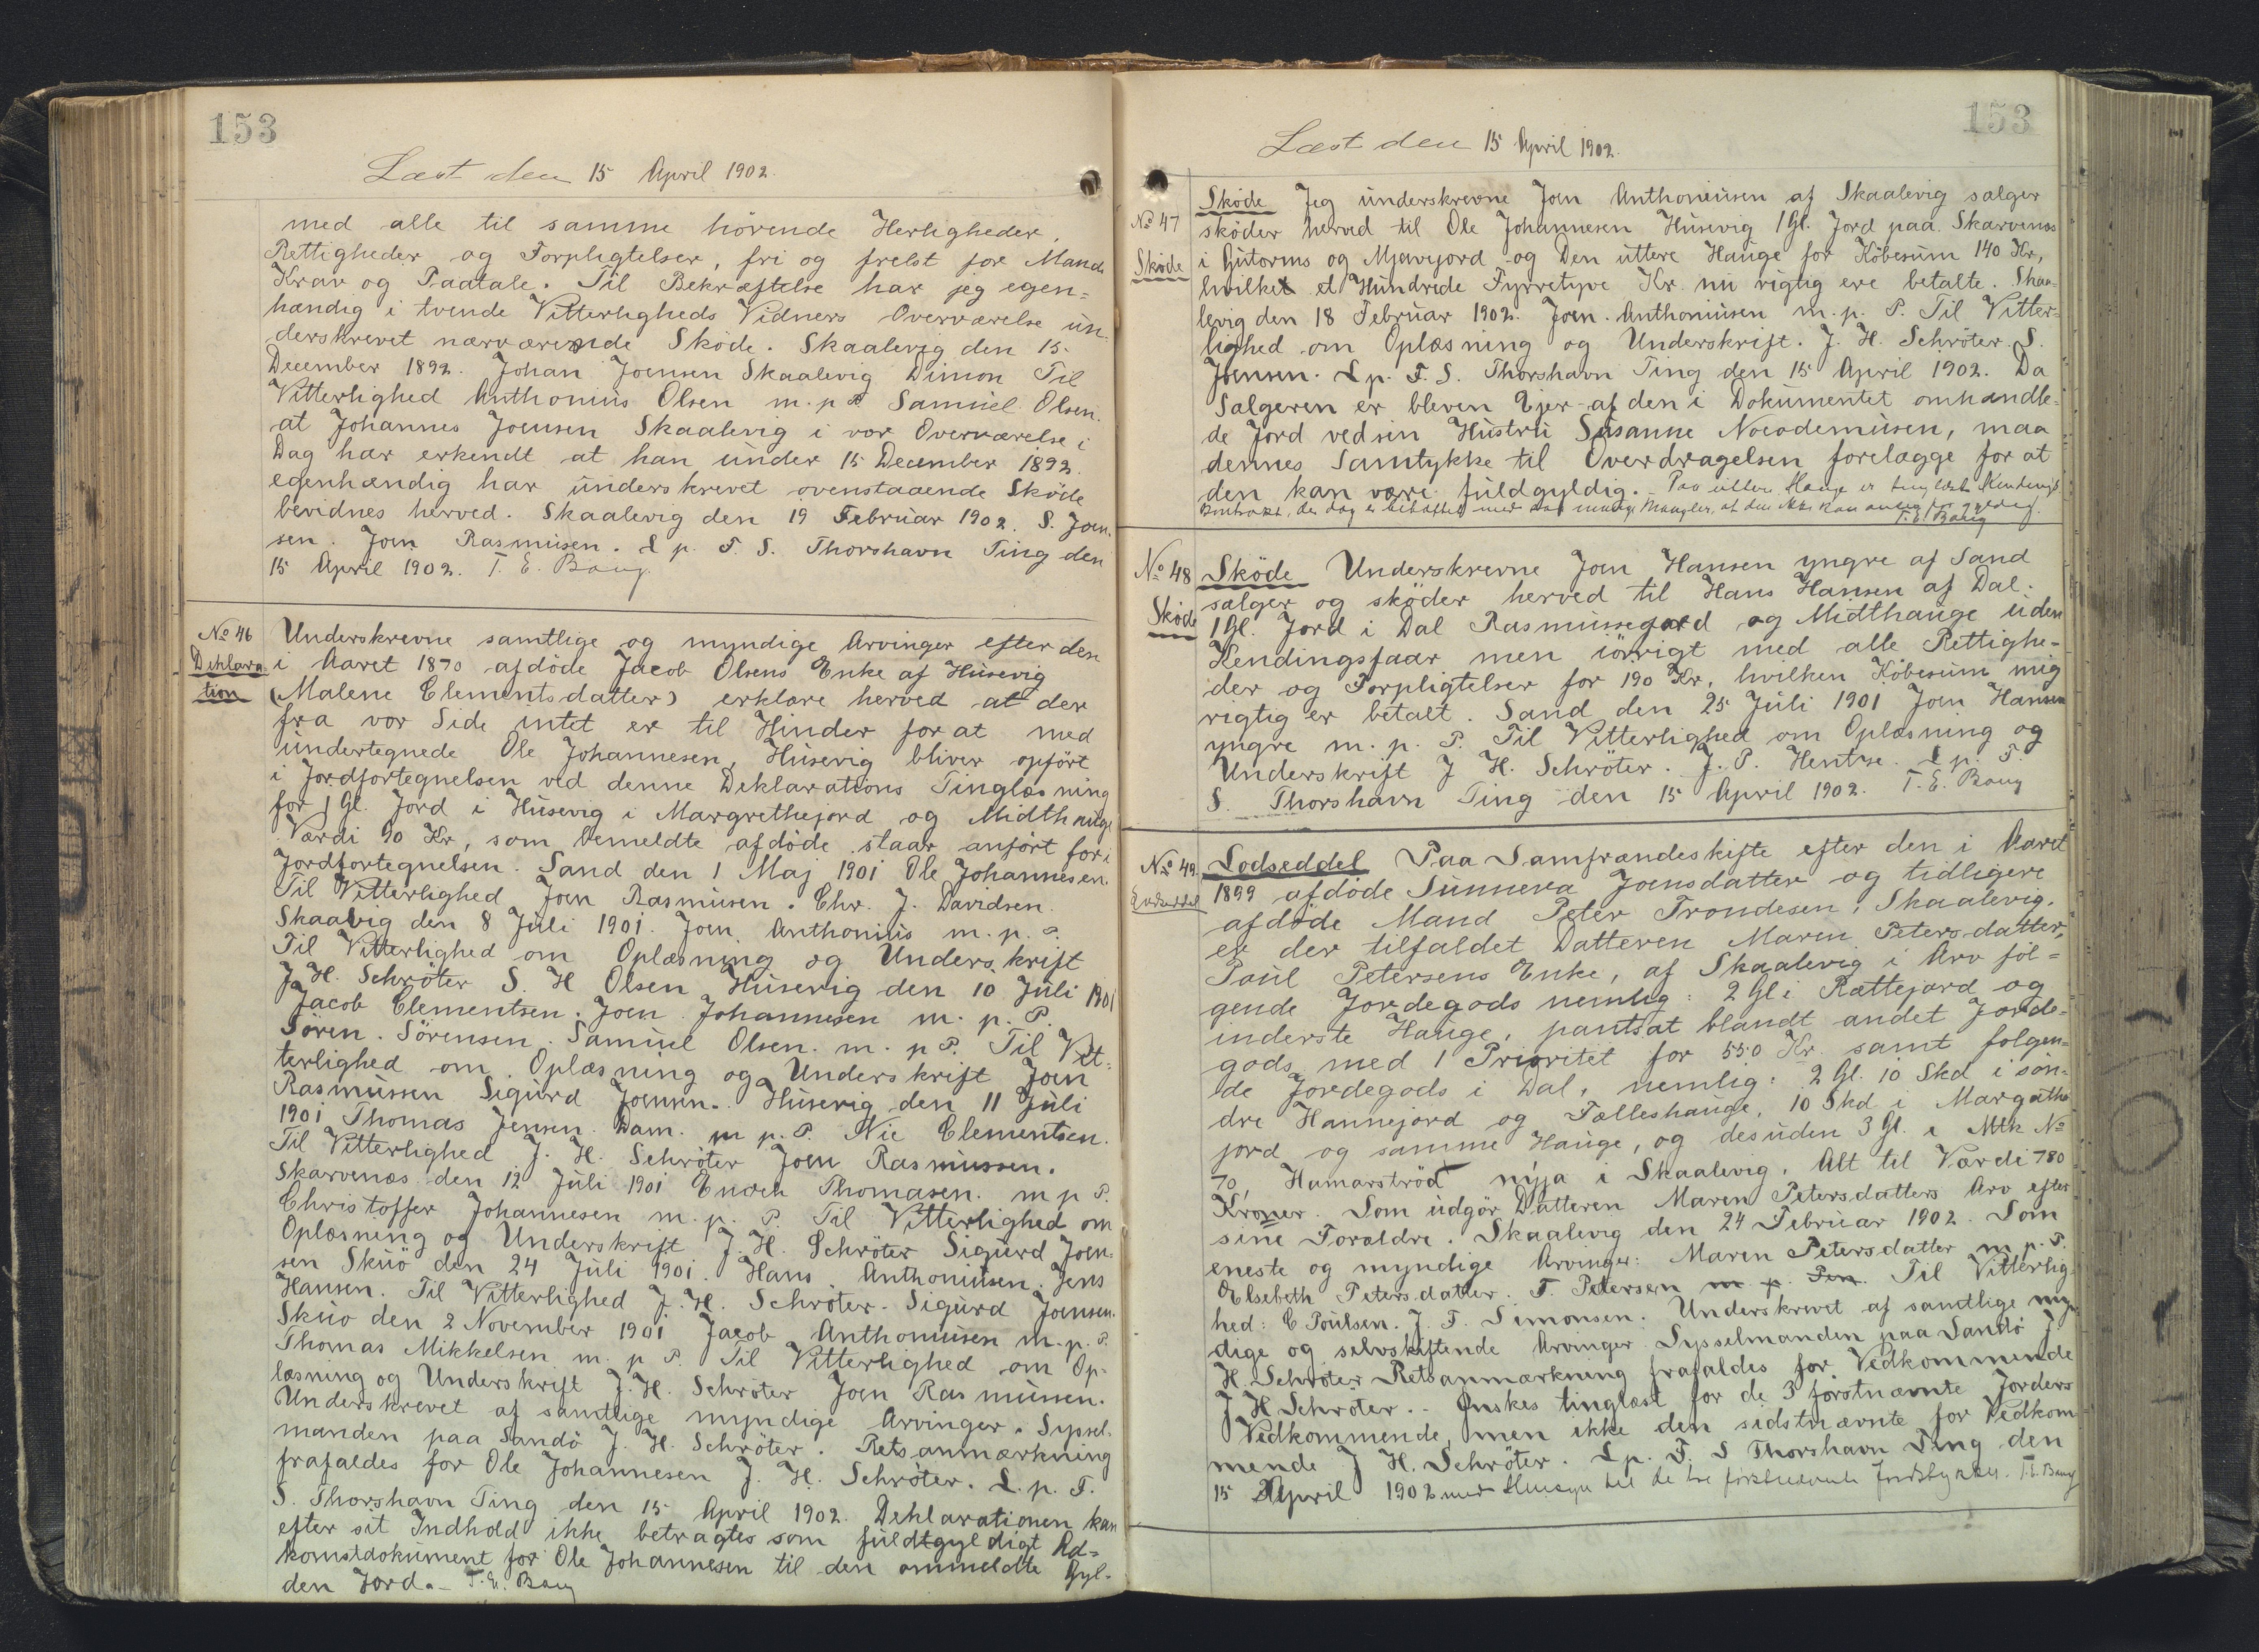 153
Læst den 15 April 1902.
med alle til samme hörende Herligheder,
Rettigheder og Forpligtelser, fri og frelst for Mands
Krav og Paatale. Til Bekræftelse har jeg egen=
hændig i tvende Vitterligheds Vidners Overværelse un-
derskrevet nærværende Sköde. Skaalevig den 15-
December 1892. Johan Joensen Skaalevig Dimon Til
Vitterlighed Anthonius Olsen m. p. P. Samuel Olsen.
at Johannes Joensen Skaalevig i vor Overværelse i
Dag har erkendt at han under 15 December 1892
egenhændig har underskrevet ovenstaaende Sköde
bevidnes herved. Skaalevig den 19 Februar 1902. S. Joen-
sen. Joen Rasmusen. L. p. F. S. Thorshavn Ting den
15 April 1902. T. E. Bang.
No 46
Deklara-
tion
Underskrevne samtlige og myndige Arvinger efter den
i Aaret 1870 afdöde Jacob Olsens Enke af Husevig
(Malene Clementsdatter) erklære herved at der
fra vor Side intet er til Hinder for at med
undertegnede Ole Johannesen, Husevig bliver opfört
i Jordfortegnelsen ved denne Deklarations Tinglæsning
for 1 Gl. Jord i Husevig i Margrethejord og Midthauge
Værdi 90 Kr, som bemeldte afdöde staar anfört for i
Jordfortegnelsen. Sand den 1 Maj 1901 Ole Johannesen.
Til Vitterlighed Joen Rasmusen. Chr. J. Davidsen.
Skaalvig den 8 Juli 1901. Joen Anthonius m. p. P.
Til Vitterlighed om Oplæsning og Underskrift
J. H. Schröter S. H Olsen Husevig den 10 Juli 1901
Jacob Clementsen. Joen Johannesen m. p. P.
Sören. Sörensen. Samuel Olsen. m. p P. Til Vit-
terlighed om Oplæsning og Underskrift Joen
Rasmussen Sigurd Joensen. Husevig den 11 Juli
1901 Thomas Jensen. Dam. m p. P. Nic Clementsen.
Til Vitterlighed J. H. Schröter Joen Rasmussen.
Skarvenæs den 12 Juli 1901 Enoch Thomasen. m p P.
Christoffer Johannesen m. p. P. Til Vitterlighed om
Oplæsning og Underskrift J. H. Schröter Sigurd Joen-
sen Skuö den 24 Juli 1901. Hans. Anthoniusen. Jens
Hansen. Til Vitterlighed J. H. Schröter. Sigurd Joensen.
Skuo den 2 November 1901 Jacob Anthoniusen m. p. P.
Thomas Mikkelsen m. p P. Til Vitterlighed om Op-
læsning og Underskrift J. H. Schröter Joen Rasmusen.
Underskrevet af samtlige myndige Arvinger. Syssel-
manden paa Sandö J. H. Schröter. Retsanmærkning
frafaldes for Ole Johannesen J. H. Schröter. L. p. F.
S. Thorshavn Ting den 15 April 1902. Deklarationen kan
efter sit Indhold ikke betragtes som fuldtgyldigt Ad=
komstdokument for Ole Johannesen til den ommeldte Gyl-
den Jord. - T. E. Bang
153
Læst den 15 April 1902.
No 47
Sköde
Sköde Jeg underskrevne Joen Anthoniusen af Skaalevig sælger
sköder herved til Ole Johannesen Husevig 1 Gl. Jord paa Skarvenæs
i Gutorms og Mjavejord og Den uttere Hauge for Köbesum 140 Kr,
hvilket et Hundrede Fyrretyve Kr. nu rigtig ere betalte. Skaa-
levig den 18 Februar 1902. Joen. Anthoniusen m. p. P. Til Vitter-
lighed om Oplæsning og Underskrift. J. H. Schröter. S.
Joensen. L p. F. S. Thorshavn Ting den 15 April 1902. Da
Sælgeren er bleven Ejer af den i Dokumentet omhandle-
de Jord ved sin Hustru Susanne Nocodemusen, maa
dennes Samtykke til Overdragelsen forelægge for at
den kan være fuldgyldig. - Paa uttere Hauge er tinglæst
Kontrakt, der dog er behæftet med saa mange Mangler, at den ikke kan
T. E. Bang
No 48
Sköde
Sköde Underskrevne Joen Hansen yngre af Sand
sælger og sköder herved til Hans Hansen af Dal.
1 Gl. Jord i Dal Rasmussegard og Midthauge uden
Kendingsfaar men iövrigt med alle Rettighe-
der og Forpligtelser for 190 Kr, hvilken Köbesum mig
rigtig er betalt. Sand den 25 Juli 1901 Joen Hansen
yngre m. p. P. Til Vitterlighed om Oplæsning og
Underskrift J H. Schröter. J. P. Hentze. L p. F.
S. Thorshavn Ting den 15 April 1902. T. E. Bang
No 49.
Lodseddel
Lodseddel Paa Samfrændeskifte efter den i Aaret
1899 afdöde Sunneva Joensdatter og tidligere
afdöde Mand Peter Trondesen, Skaalevig.
er der tilfaldet Datteren Maren Petersdatter,
Poul Petersens Enke, af Skaalevig i Arv föl=
gende Jordegods nemlig: 2 Gl i Rættejard og
inderste Hauge, pantsat blandt andet Jorde-
gods med 1 Prioritet for 550 Kr. samt fölgen=
de Jordegods i Dal, nemlig: 2 Gl. 10 Skd i sön-
dre Hannejord og Fælleshauge, 10 Skd i Margathe
jord og samme Hauge, og desuden 3 Gl. i Mtk No
70, Hamarströd nyja i Skaalevig. Alt til Værdi 780
Kroner. Som udgör Datteren Maren Petersdatters Arv efter
sine Forældre. Skaalevig den 24 Februar 1902. Som
eneste og myndige Arvinger: Maren Petersdatter m. p. P.
Elsebeth Petersdatter. T. Petersen m. p. Pen. Til Vitterlig-
hed: C Poulsen. J. F. Simonsen. Underskrevet af samtlige myn
dige og selvskiftende Arvinger Sysselmanden paa Sandö J.
H. Schröter Retsanmærkning frafaldes for Vedkommende
J H Schröter. - Önskes tinglæst for de 3 förstnævnte Jorders
Vedkommende, men ikke den sidstnævnte for Vedkom
mende J H. Schröter. L p. F. S Thorshavn Ting den
15 April 1902 med Hensyn til de tre förstnævnte Jordstykker. T. E. Bang